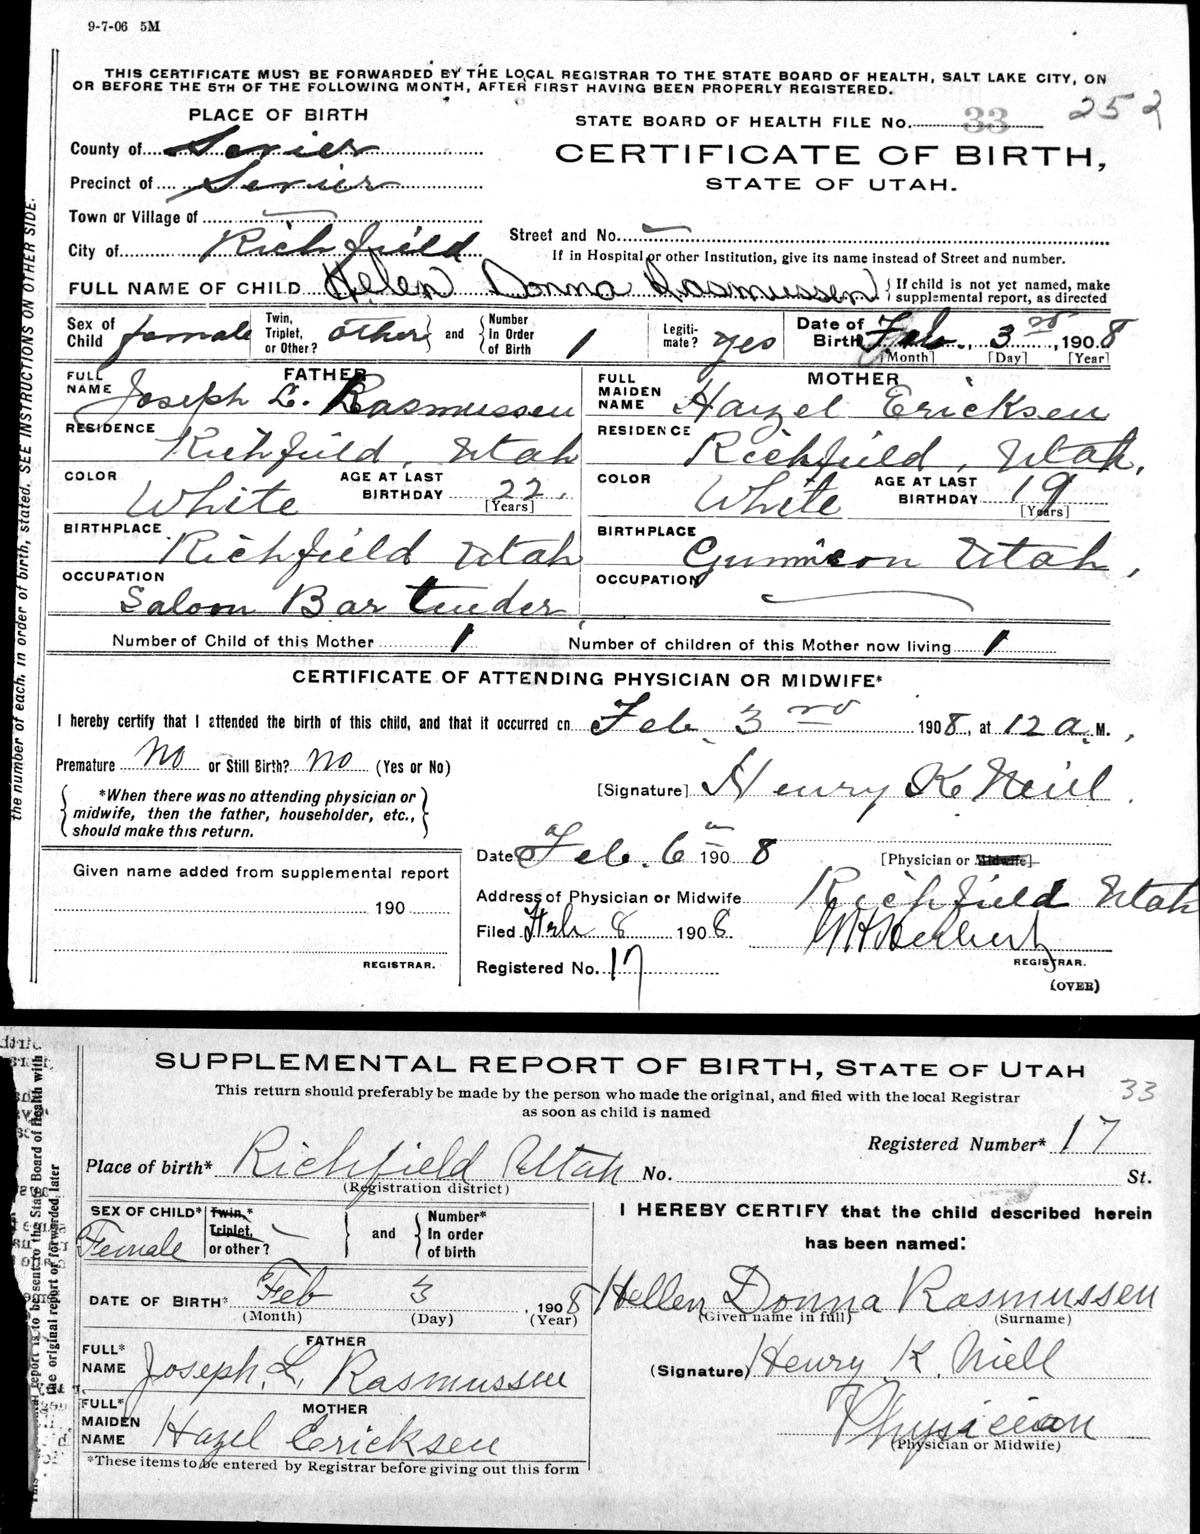 9-7-06 5M
THIS CERTIFICATE MUST BE FORWARDED BY THE LOCAL REGISTRAR TO THE STATE BOARD OF HEALTH, SALT LAKE CITY, ON
OR BEFORE THE 5TH OF THE FOLLOWING MONTH, AFTER FIRST HAVING BEEN PROPERLY REGISTERED.
PLACE OF BIRTH
STATE BOARD OF HEALTH FILE No. 33 252
County of Sevier
CERTIFICATE OF BIRTH,
Precinct of Sevier
STATE OF UTAH.
Town or Village of
City of Richfield
Street and No.
If in Hospital or other Institution, give its name instead of Street and number.
FULL NAME OF CHILD Helen Donna Rasmussen
If child is not yet named, make
supplemental report, as directed
Sex of Child female
Twin, Triplet, or Other? other and Number In Order of Birth 1
Legiti-mate? yes
Date of Birth Feb. 3rd, 1908
[Month] [Day] [Year]
FATHER
FULL NAME Joseph L. Rasmussen
MOTHER
FULL MAIDEN NAME Hazel Ericksen
RESIDENCE Richfield, Utah
RESIDENCE Richfield, Utah.
COLOR White AGE AT LAST BIRTHDAY 22. [Years]
COLOR White AGE AT LAST BIRTHDAY 19 [Years]
BIRTHPLACE Richfield Utah
BIRTHPLACE Gunnison Utah,
OCCUPATION Saloon Bar tender
OCCUPATION
Number of Child of this Mother 1 Number of children of this Mother now living 1
CERTIFICATE OF ATTENDING PHYSICIAN OR MIDWIFE*
I hereby certify that I attended the birth of this child, and that it occurred on Feb. 3rd 1908, at 12 a. M.
Premature No or Still Birth? No (Yes or No)
[Signature] Henry K Neill
*When there was no attending physician or
midwife, then the father, householder, etc.,
should make this return.
Date Feb. 6 1908 [Physician or Midwife]
Given name added from supplemental report
190
REGISTRAR.
Address of Physician or Midwife Richfield Utah
Filed Feb 8 1908. Herbert
REGISTRAR.
Registered No. 17
(OVER)
the number of each, in order of birth, stated. SEE INSTRUCTIONS ON OTHER SIDE.
SUPPLEMENTAL REPORT OF BIRTH, STATE OF UTAH
This return should preferably be made by the person who made the original, and filed with the local Registrar
as soon as child is named
33
Registered Number* 17
Place of birth* Richfield Utah No. St.
(Registration district)
SEX OF CHILD* Female
Twin,* Triplet, or other? and Number* In order of birth
I HEREBY CERTIFY that the child described herein
has been named:
DATE OF BIRTH* Feb 3, 1908
(Month) (Day) (Year)
Hellen Donna Rasmussen
(Given name in full) (Surname)
FATHER
FULL* NAME Joseph. L. Rasmussen
(Signature) Henry K. Niell
MOTHER
FULL* MAIDEN NAME Hazel Ericksen
Physician
(Physician or Midwife)
*These items to be entered by Registrar before giving out this form
report is to be sent to the State Board of Health with
the original report or forwarded later